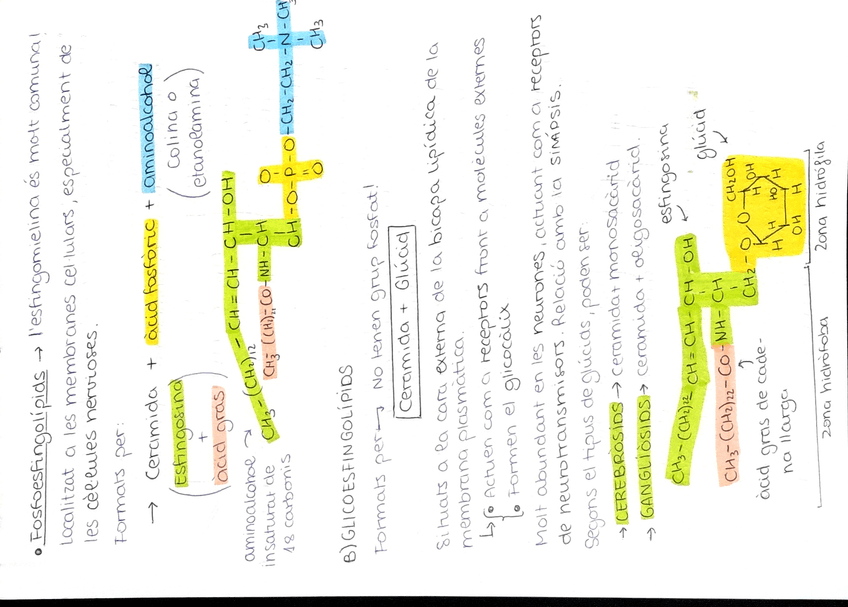 • Fosfoesfingolípids → l'esfingomielina és molt comuna!
Localitzat a les membranes cel·lulars, especialment de
les cèl·lules nervioses.
Formats per:
→ Ceramida + àcid fosfòric + aminoalcohol
(Esfingosina + àcid gras)
(Colina o etanolamina)
aminoalcohol →
insaturat de
18 carbonis
CH3-(CH2)12-CH=CH-CH-OH
CH3-(CH2)n-CO-NH-CH
CH-O-P-O-CH2-CH2-N-CH
O
O
CH3
CH3
B) GLICOESFINGOLÍPIDS
Formats per → No tenen grup fosfat!
Ceramida + Glúcid
Situats a la cara externa de la bicapa lipídica de la
membrana plasmàtica.
↳ • Actuen com a receptors front a molècules externes
• Formen el glicocàlix
Molt abundant en les neurones, actuant com a receptors
de neurotransmisors. Relació amb la SINAPSIS.
Segons el tipus de glúcids, poden ser:
→ CEREBRÒSIDS → ceramida + monosacàrid
→ GANGLIÒSIDS → ceramida + oligosacàrid.
esfingosina
glúcid
CH3-(CH2)12-CH=CH-CH-OH
CH3-(CH2)22-CO-NH-CH
CH2-O
CH2OH
O
O
H
OH
H
HO
H
OH
H
H
àcid gras de cade-
na llarga
zona hidròfoba
zona hidròfila